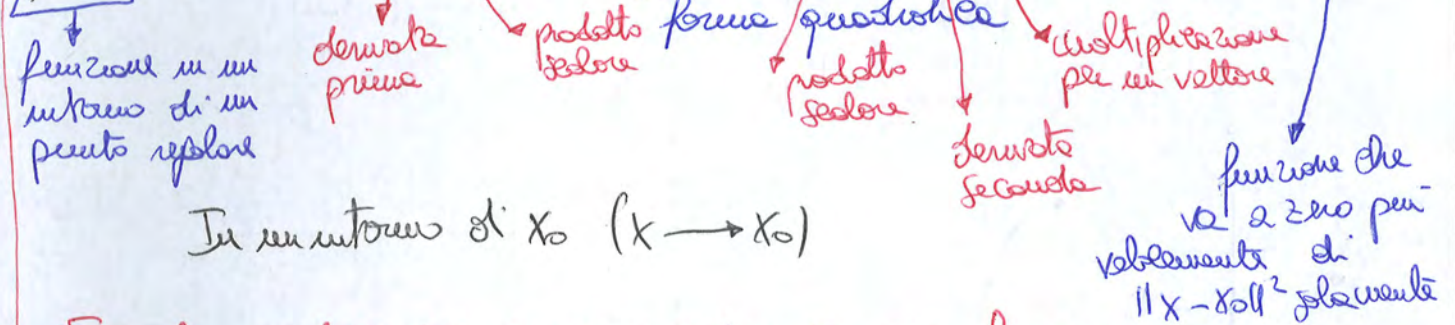 forma quadratica
funzione in un
intorno di un
punto regolare
derivata
prima
prodotto
scalare
prodotto
scalare
derivata
seconda
moltiplicazione
per un vettore
funzione che
va a zero più
velocemente di
||x-x₀||² solamente
In un intorno di x₀ (x → x₀)